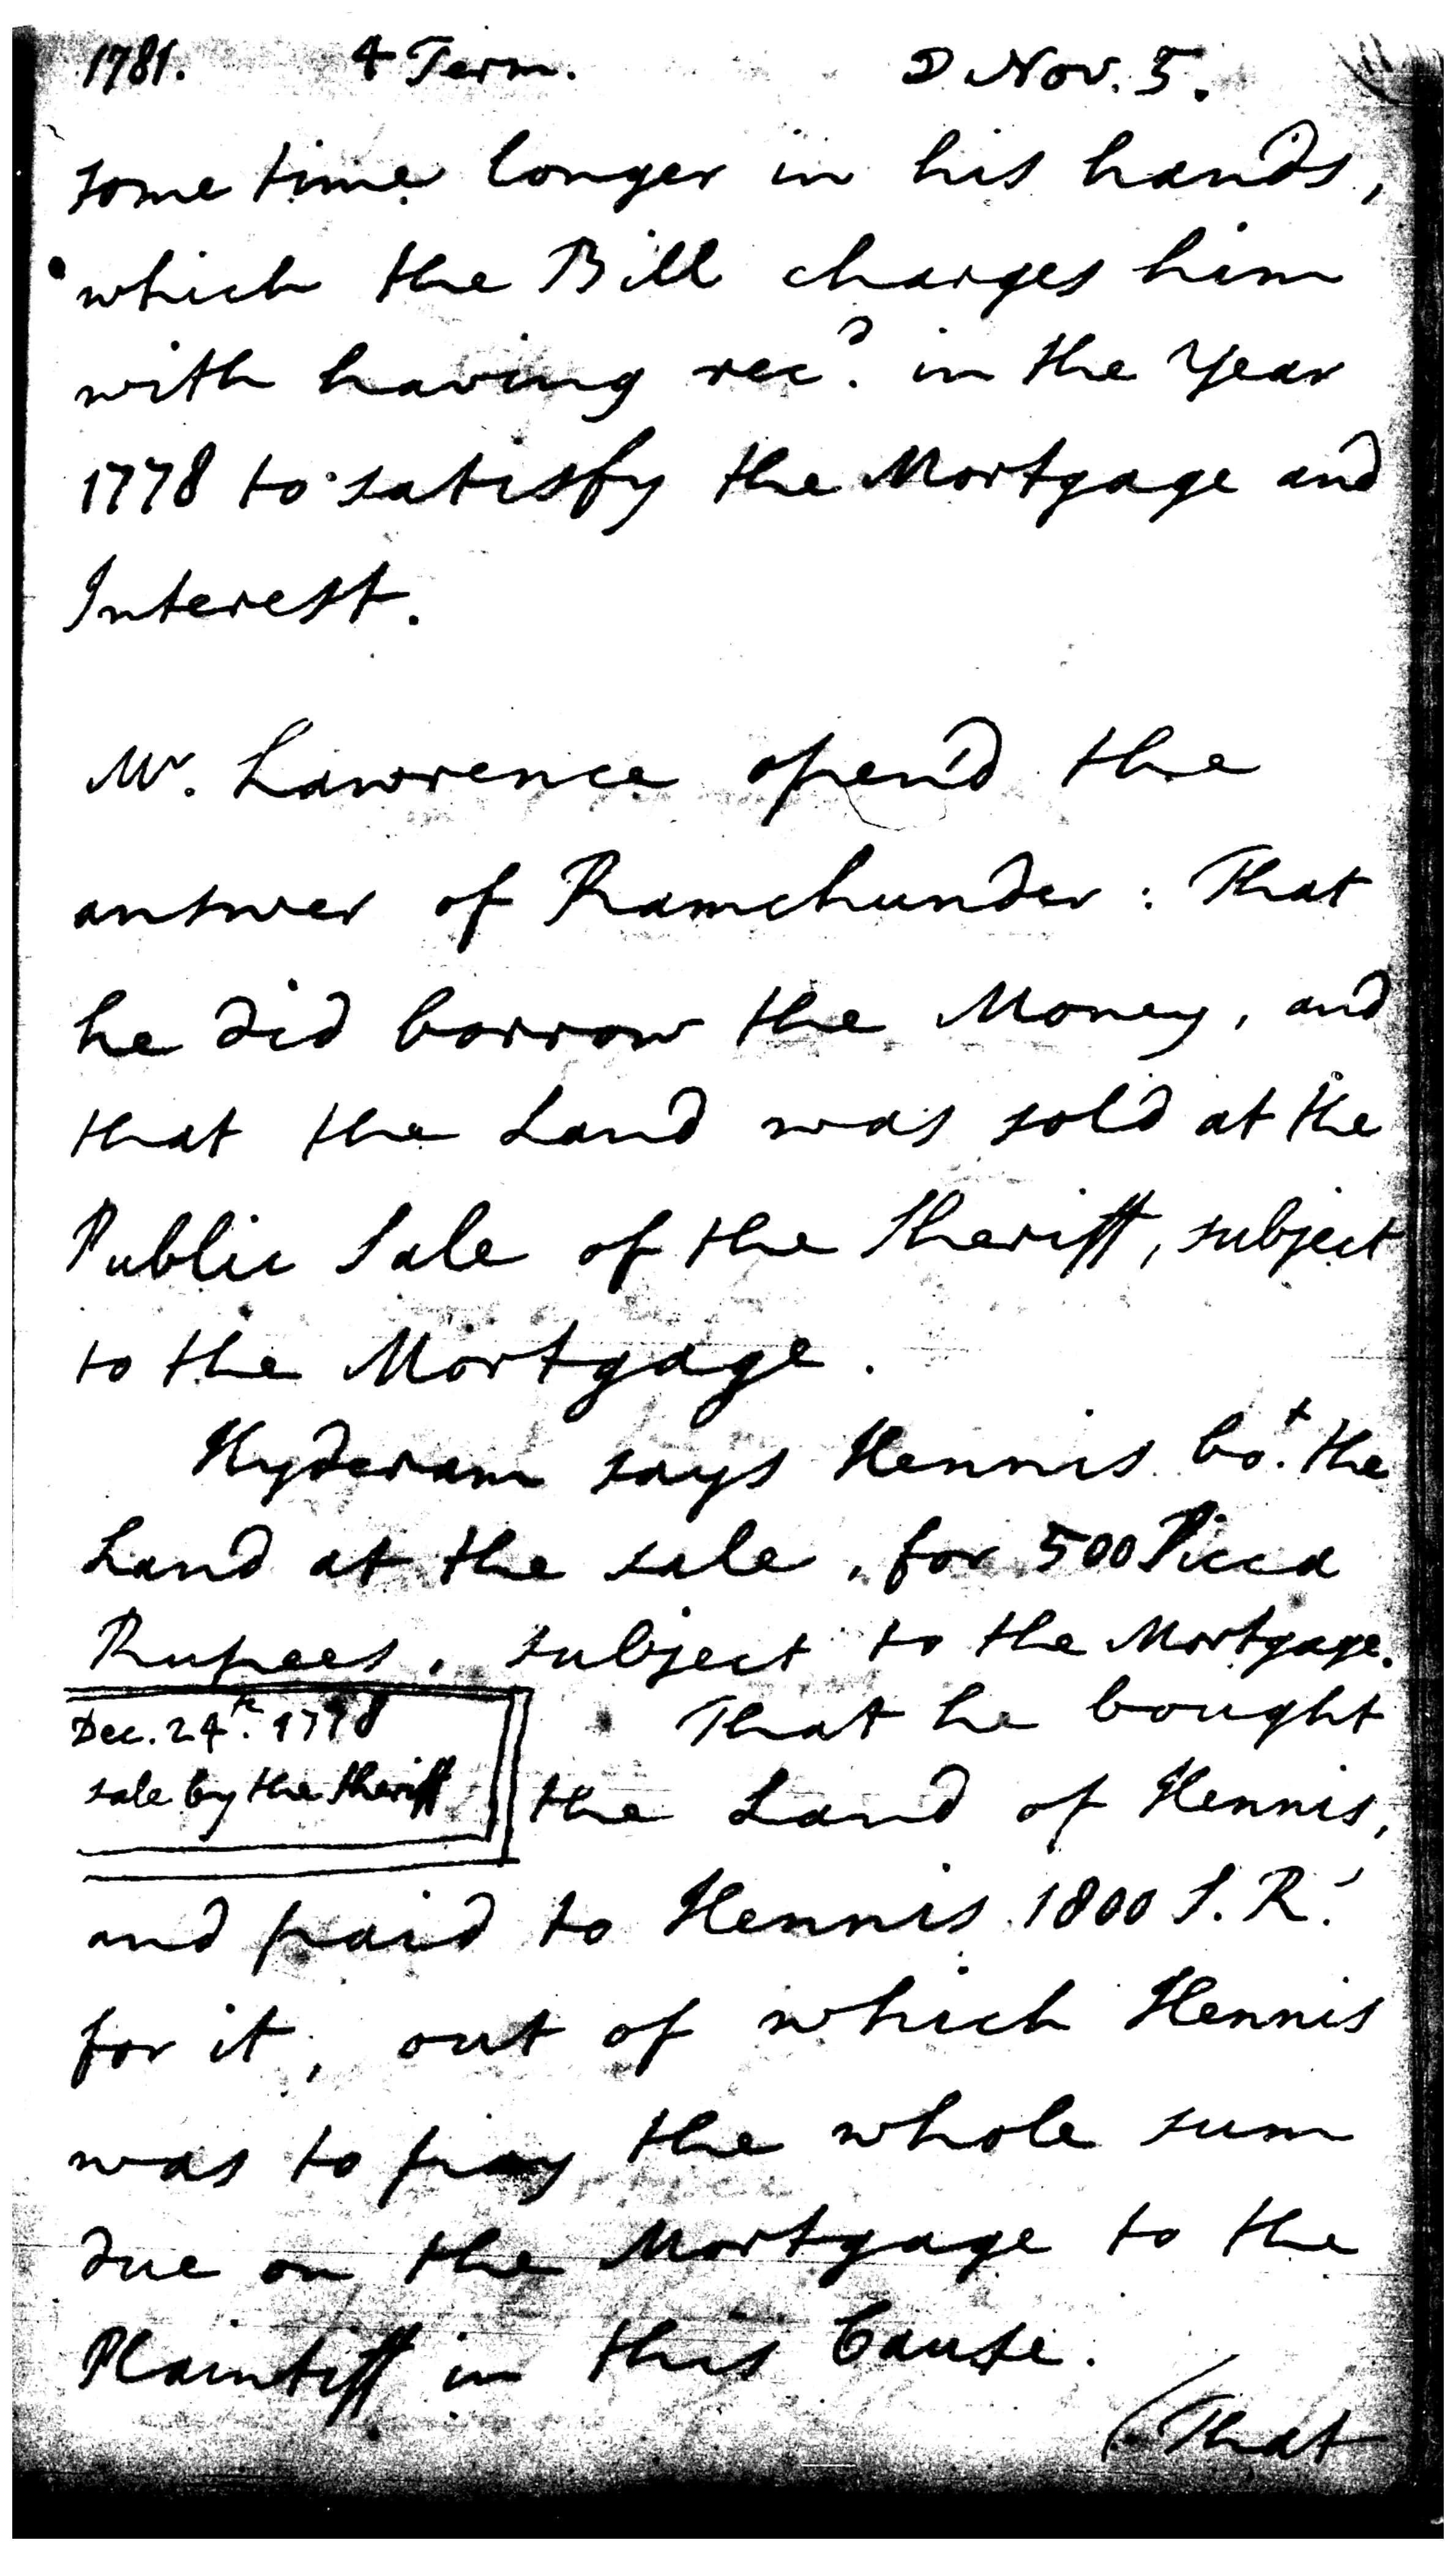 1781. 4 Term. ☽ Nov. 5.
some time longer in his hands,
which the Bill charges him
with having rec.d in the Year
1778 to satisfy the Mortgage and
Interest.
Mr. Lawrence open'd the
answer of Ramchunder: That
he did borrow the Money, and
that the Land was sold at the
Public Sale of the Sheriff, subject
to the Mortgage.
Hyderam says Hennis bo.t the
Land at the sale, for 500 Sicca
Rupees, subject to the Mortgage.
Dec. 24.th 1778
sale by the Sheriff
That he bought
the Land of Hennis,
and paid to Hennis 1800 S. R.s
for it, out of which Hennis
was to pay the whole sum
due on the Mortgage to the
Plaintiff in this Cause.
(That